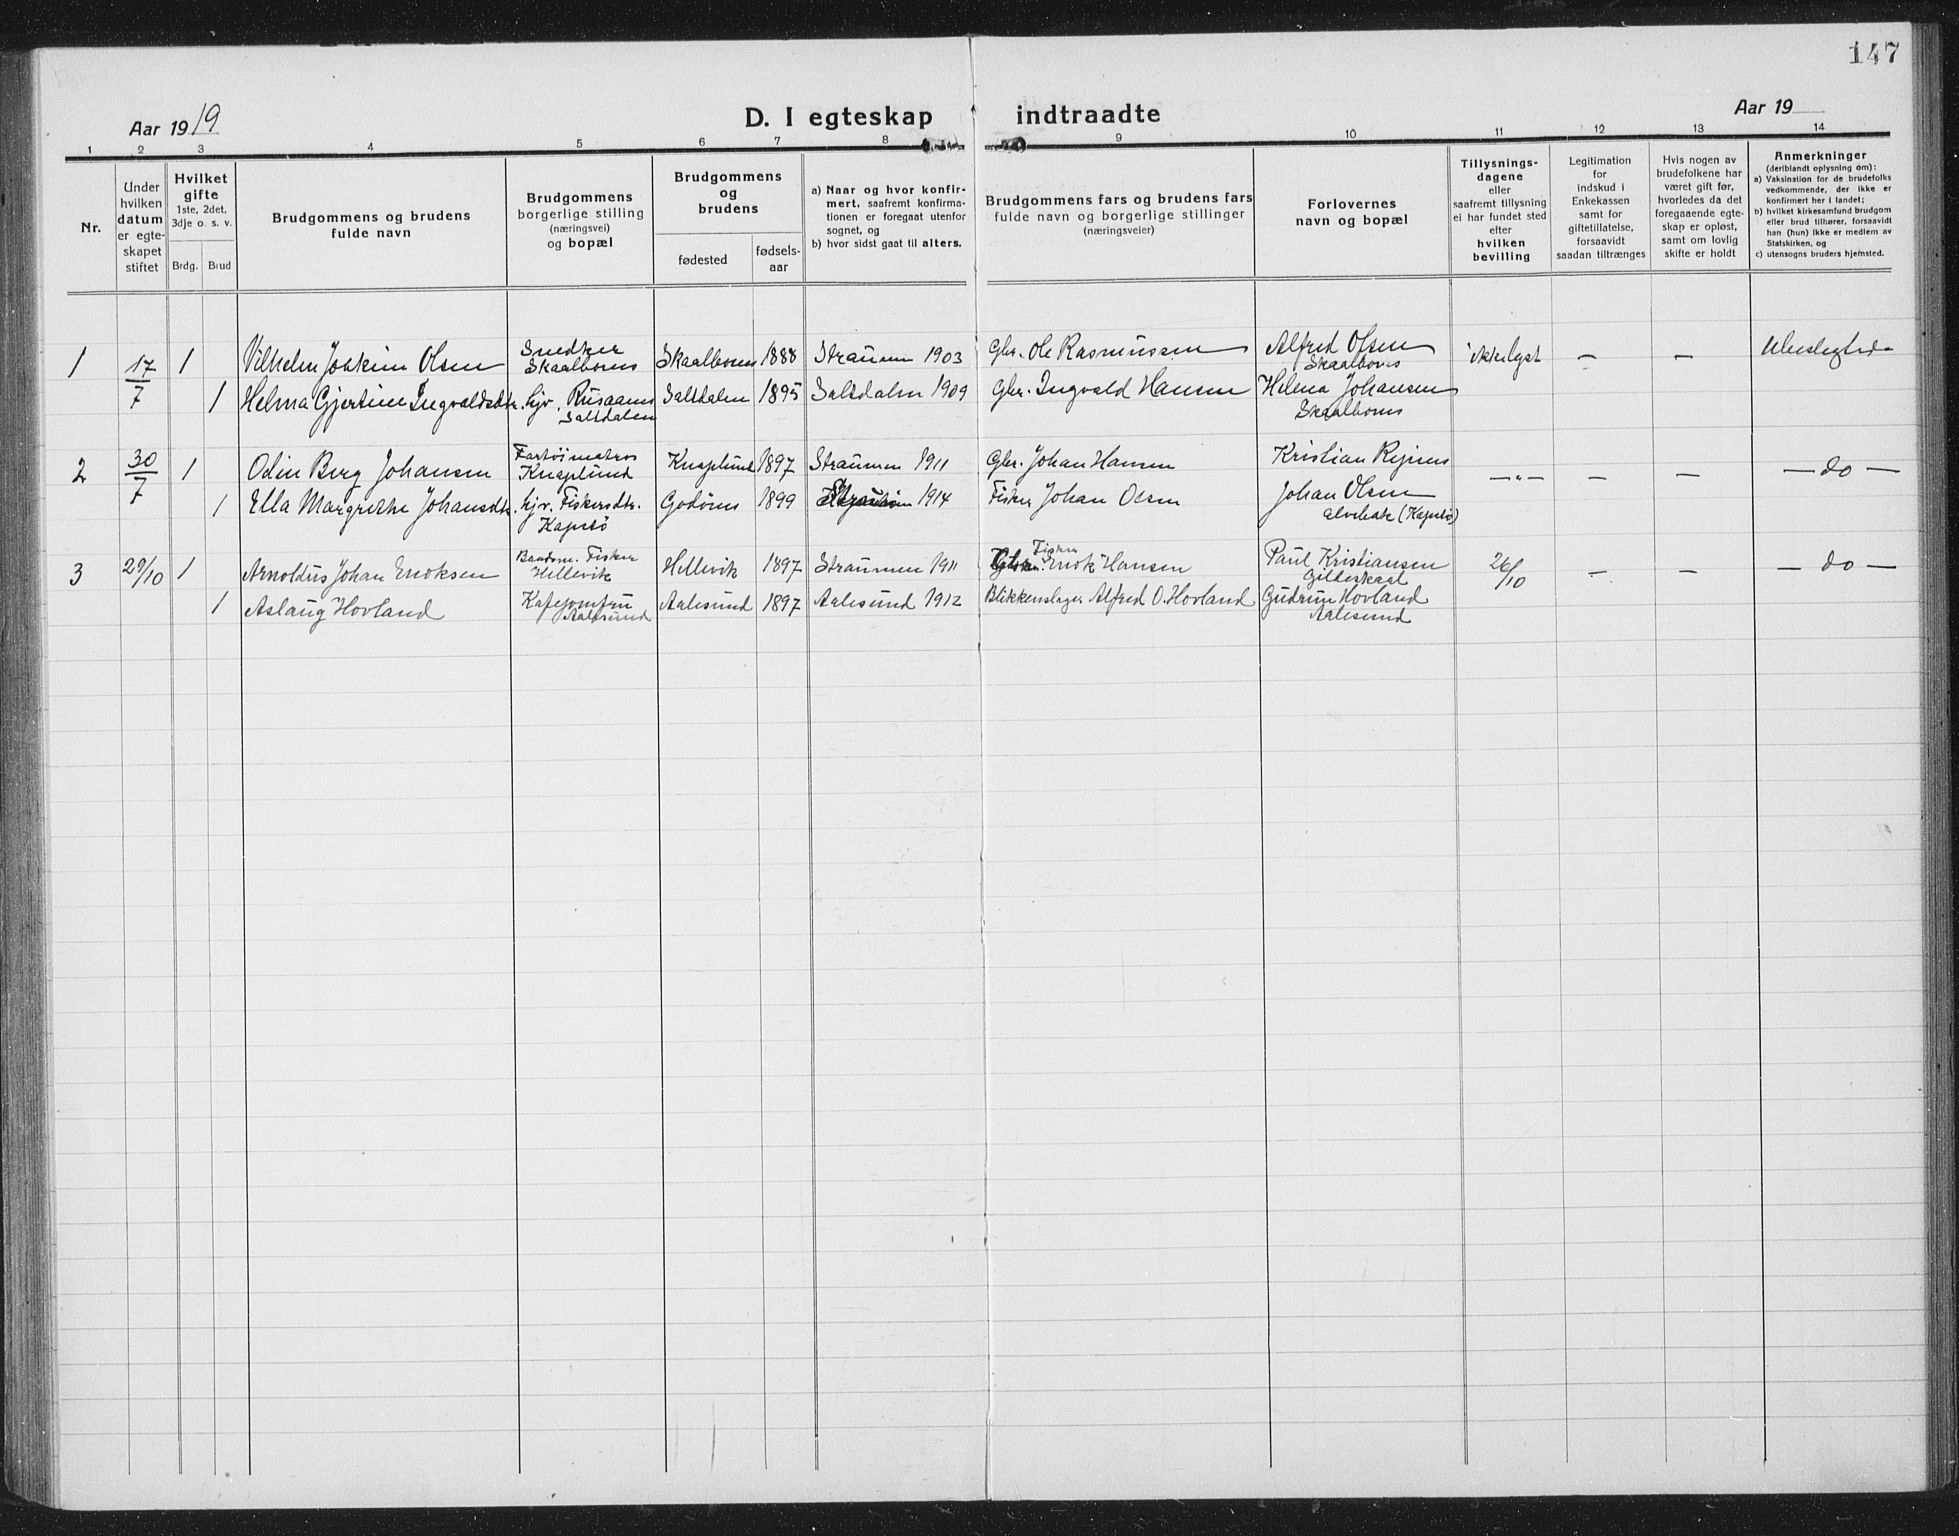 147
Aar 1919
D. I egteskap indtraadte
Aar 19
1 2 3 4 5 6 7 8 9 10 11 12 13 14
Nr.
Under
hvilken
datum
er egte-
skapet
stiftet
Hvilket
gifte
1ste, 2det,
3dje o. s. v.
Brdg. Brud
Brudgommens og brudens
fulde navn
Brudgommens
borgerlige stilling
(næringsvei)
og bopæl
Brudgommens
og
brudens
fødested
fødsels-
aar
a) Naar og hvor konfir-
mert, saafremt konfirma-
tionen er foregaat utenfor
sognet, og
b) hvor sidst gaat til alters.
Brudgommens fars og brudens fars
fulde navn og borgerlige stillinger
(næringsveier)
Forlovernes
navn og bopæl
Tillysnings-
dagene
eller
saafremt tillysning
ei har fundet sted
efter
hvilken
bevilling
Legitimation
for
indskud i
Enkekassen
samt for
giftetillatelse,
forsaavidt
saadan tiltrænges
Hvis nogen av
brudefolkene har
været gift før,
hvorledes da det
foregaaende egte-
skap er opløst,
samt om lovlig
skifte er holdt
Anmerkninger
(deriblandt oplysning om):
a) Vaksination for de brudefolks
vedkommende, der ikke er
konfirmert her i landet;
b) hvilket kirkesamfund brudgom
eller brud tilhører, forsaavidt
han (hun) ikke er medlem av
Statskirken, og
c) utensogns bruders hjemsted.
1 17/7 1 Vilhelm Joakim Olsen Snedker Skaalbones Skaalbones 1888 Straumen 1903 Gbr. Ole Rasmussen Alfred Olsen Skaalbones ikke lyst — — Ubeslegtede
1 Helma Gjertine Ingvaldsdtr. hjv. Rusaanes Saltdalen Saltdalen 1895 Saltdalen 1909 Gbr. Ingvald Hansen Helena Johansen Skaalbones
2 30/7 1 Odin Berg Johansen Fartøimatros Knaplund Knaplund 1897 Straumen 1911 Gbr. Johan Hansen Kristian —"— — — — do —
1 Ella Margrethe Johansdtr. hjv. Fiskersdtr. Kapstø Godønes 1899 Straumen 1914 Fisker Johan Olsen Johan Olsen (Kapstø)
3 29/10 1 Arnoldus Johan Enoksen Baadsm. Fisker Hellevik Hellevik 1897 Straumen 1911 Fisker Enok Hansen Paul Kristiansen Gildeskaal 26/10 — — — do —
1 Aslaug Hovland Kafejomfru Aalesund Aalesund 1897 Aalesund 1912 Blikkenslager Alfred O. Hovland Gudrun Hovland Aalesund